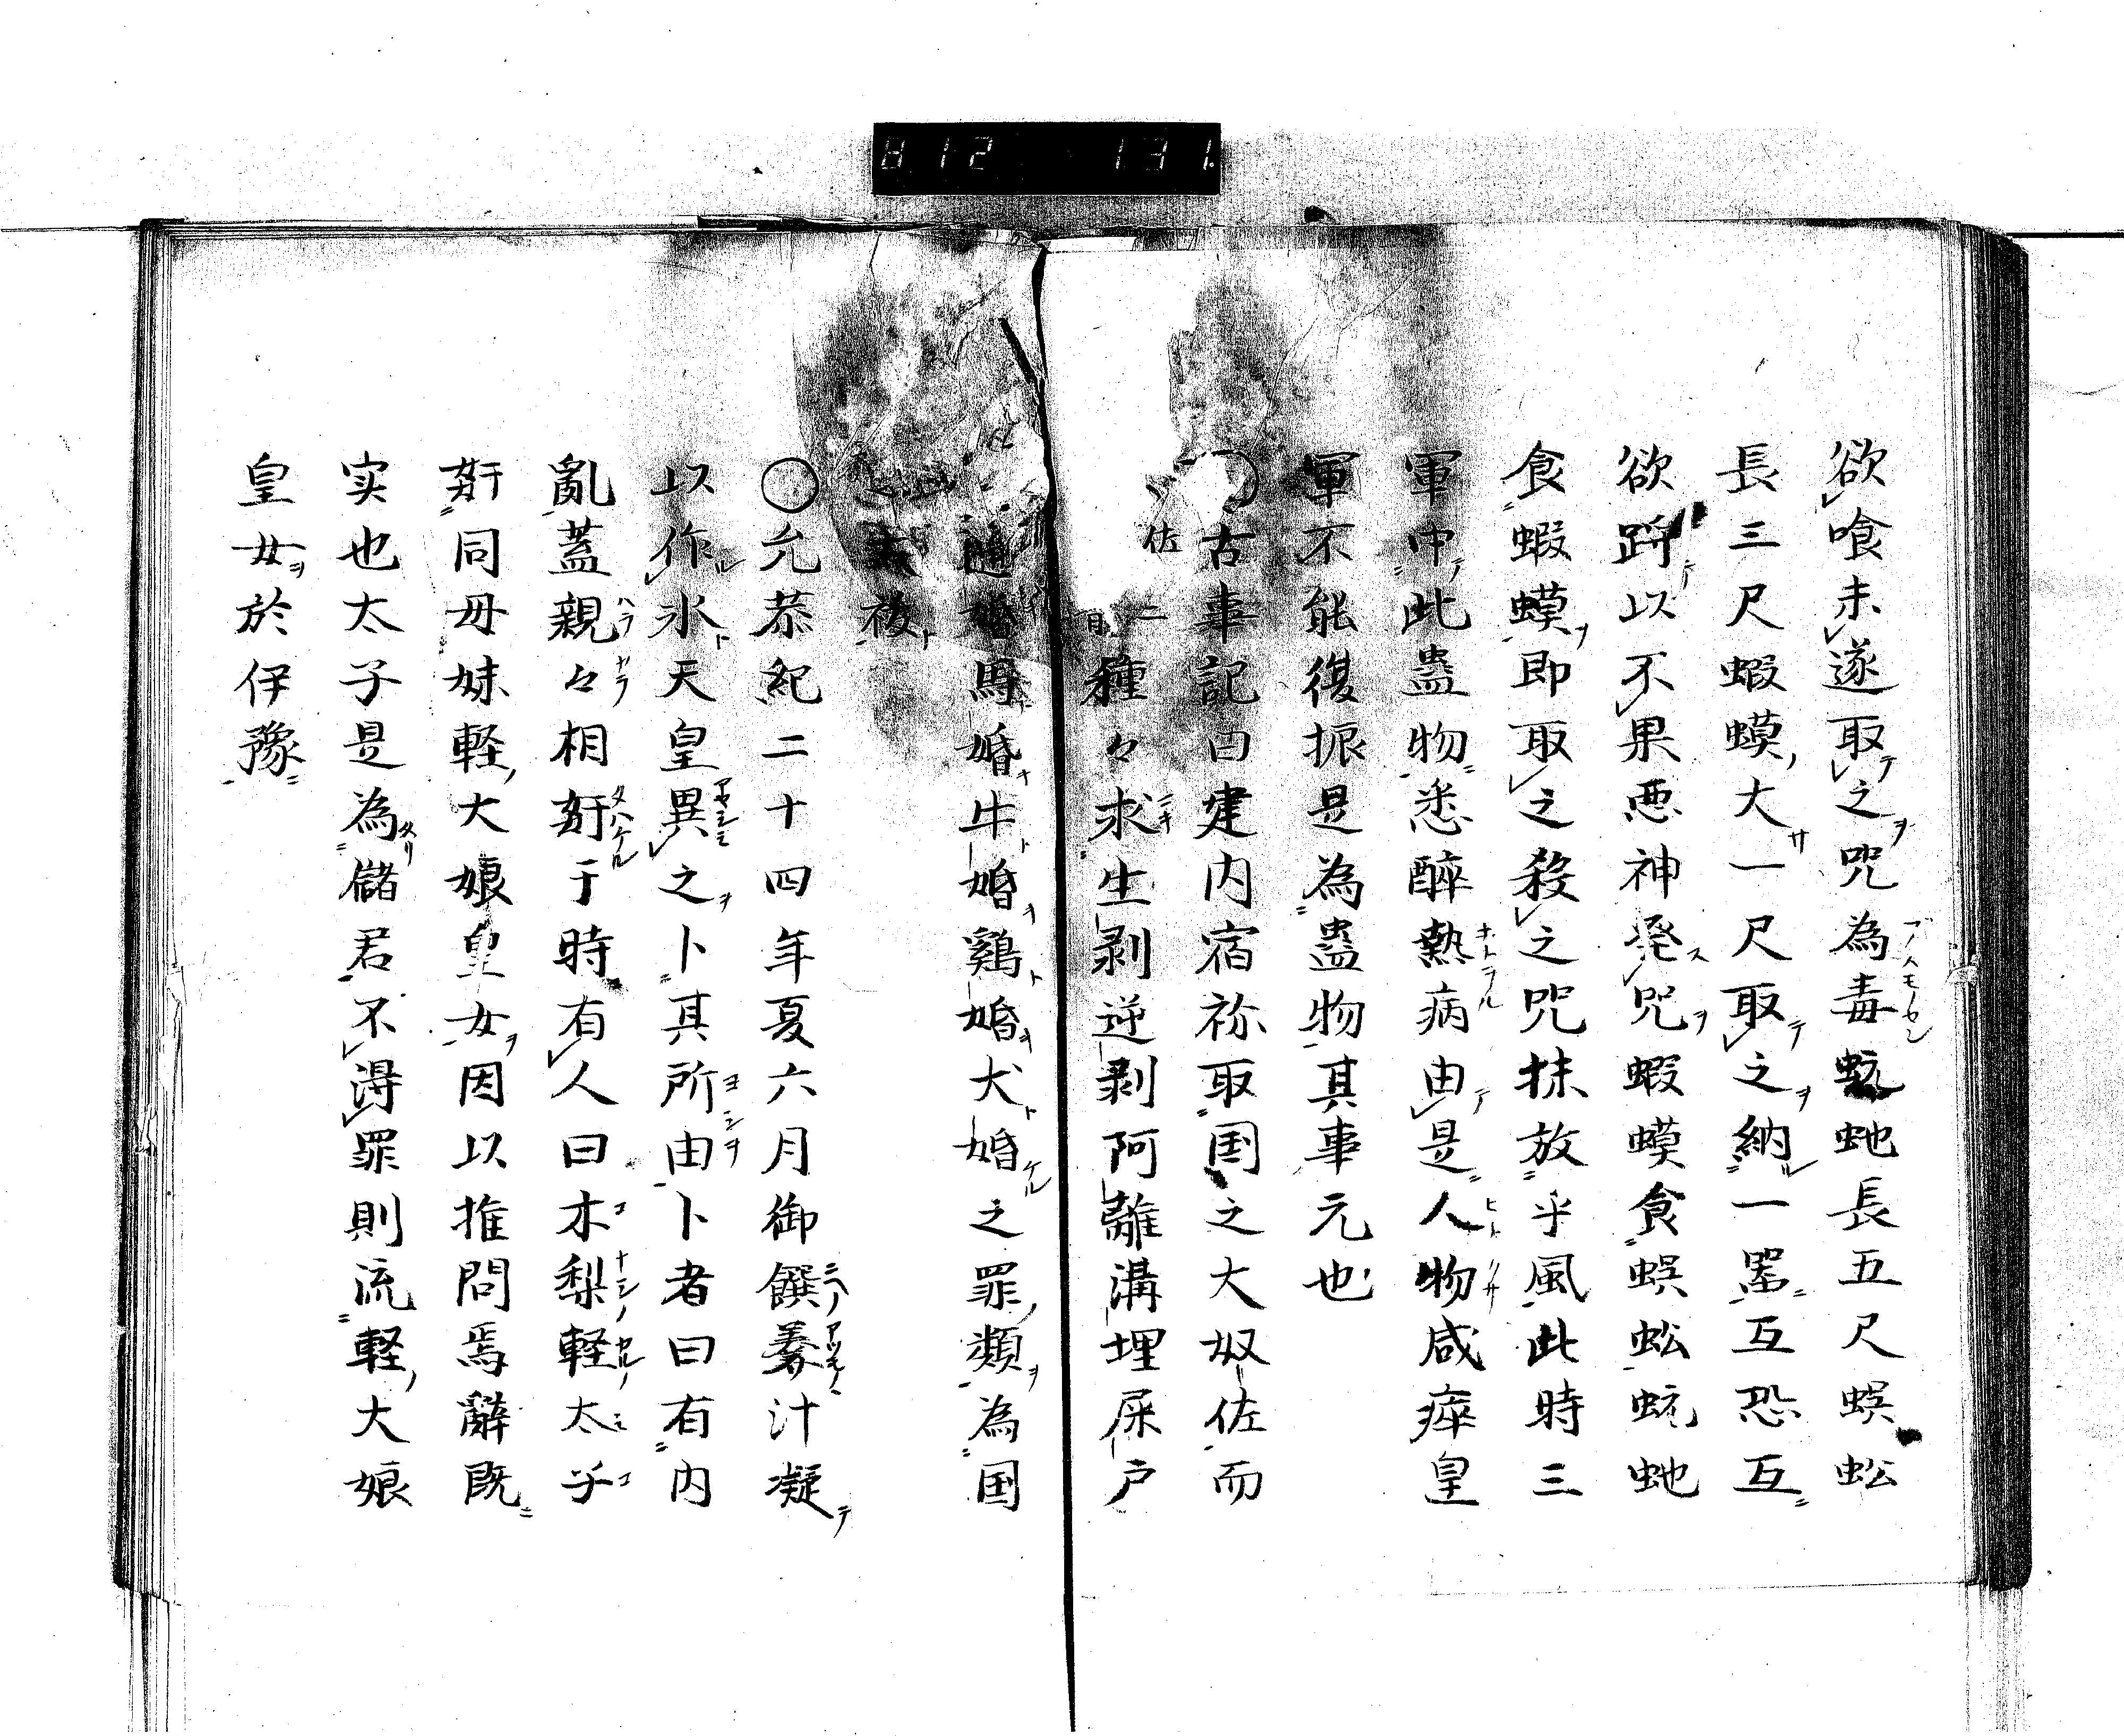 812 131
欲喰未遂取之咒為毒蚖虵長五尺蜈蚣
長三尺蝦蟆大一尺取之納一器互恐互
欲　以不果悪神発咒蝦蟆食蜈蚣蚖虵
食蝦蟆即取之殺之咒抹放乎風此時三
軍中此蠱物悉醉熱病由是人物咸瘁皇
軍不能復振是為蠱物其事元也
〇古事記曰建内宿祢取国之大奴佐而
種々求生剥逆剥阿離溝埋屎戸
婚馬婚牛婚鷄婚犬婚之罪類為国
大祓
〇允恭紀二十四年夏六月御饌羹汁凝
以作氷天皇異之卜其所由卜者曰有内
亂蓋親々相姧于時有人曰木梨軽太子
姧同母妹軽大娘皇女因以推問焉辭既
実也太子是為儲君不得罪則流軽大娘
皇女於伊豫